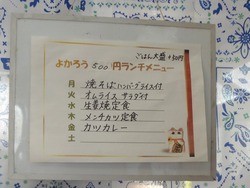 ごはん大盛+50円
よかろう500円ランチメニュー
月 焼そばハンバーグライス付
火 オムライス サラダ付
水 生姜焼定食
木 メンチカツ定食
金 カツカレー
土